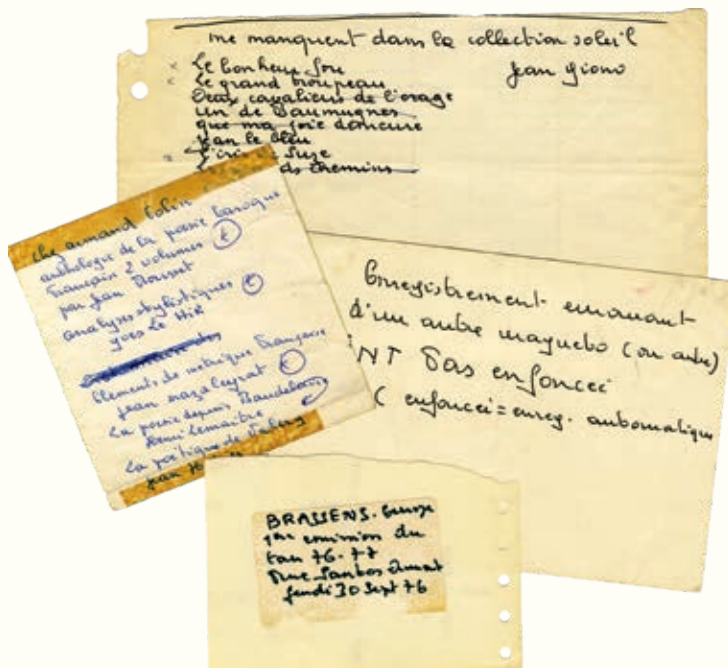 me manquent dans la collection soleil
jean giono
Le bonheur fou
Le grand troupeau
Deux cavaliers de l'orage
un de Baumugnes
que ma joie demeure
jean le bleu
L'iris de Suse
chemins
chez armand Colin
anthologie de la poésie baroque
française 2 volumes
par Jean Rousset
analyses stylistiques
yves Le Hir
Elements de métrique française
jean mazaleyrat
La poésie depuis Baudelaire
Henri Lemaitre
La poétique de Valéry
jean
Enregistrement emanant
d'un autre magneto (ou autre)
INT Pas enfoncei
( enfoncei = enreg. automatique
BRASSENS. George
1ère emission du
tan 76-77
Rue Santos Dumont
jeudi 30 Sept 76